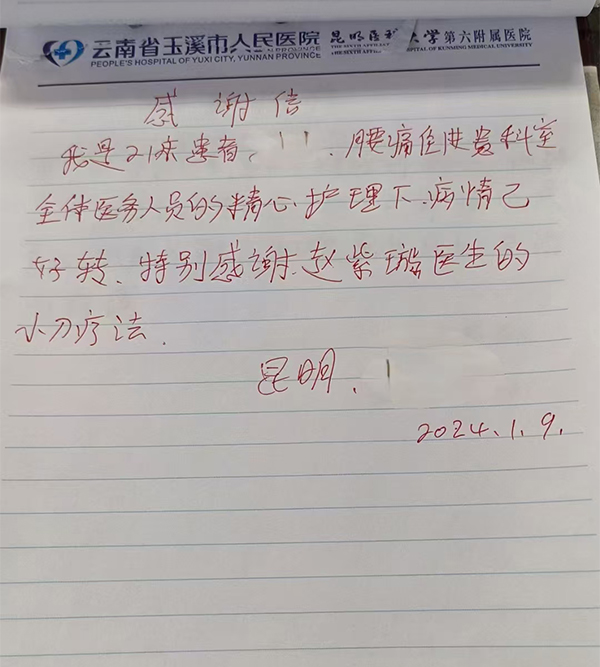 云南省玉溪市人民医院 昆明医科大学第六附属医院
PEOPLE'S HOSPITAL OF YUXI CITY, YUNNAN PROVINCE THE SIXTH AFFILIATED HOSPITAL OF KUNMING MEDICAL UNIVERSITY
感谢信
我是21床患者, 腰痛住进贵科室
全体医务人员的精心护理下.病情已
好转、特别感谢赵紫璇医生的
小刀疗法.
昆明.
2024.1.9.